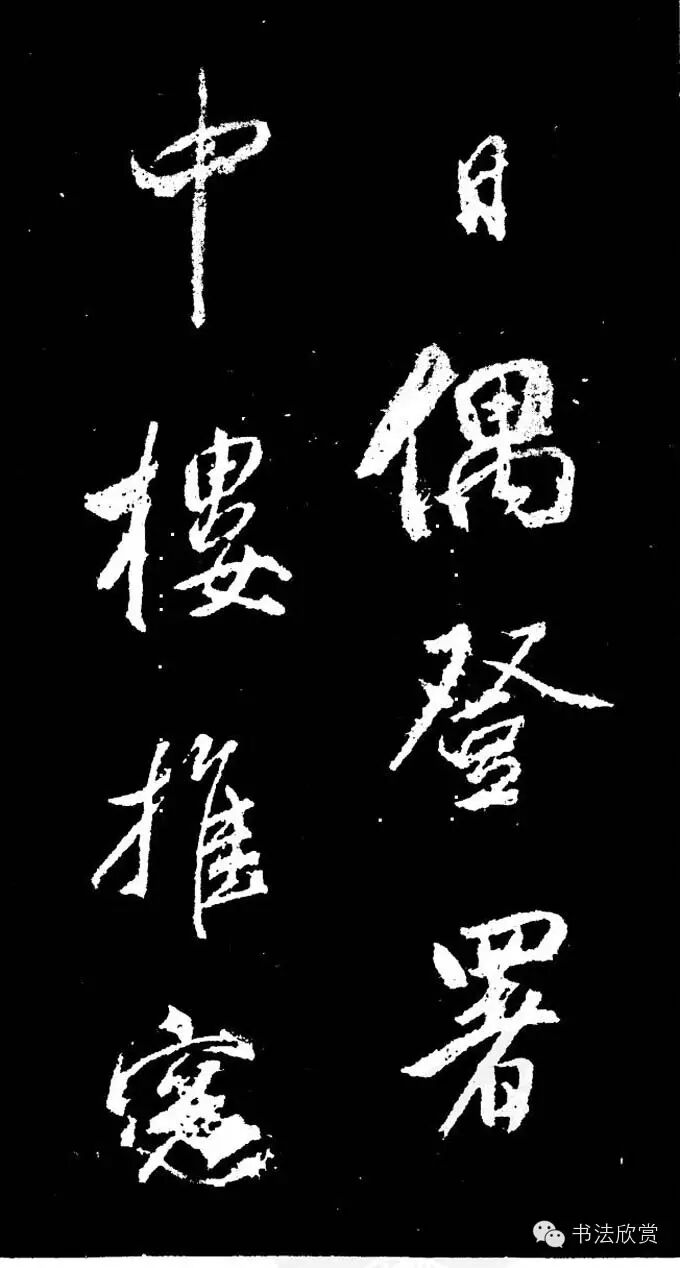 日偶登署
中樓推窓
书法欣赏